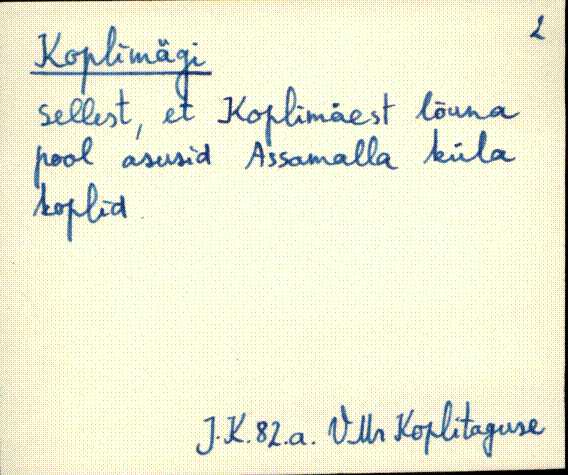 2
Koplimägi
sellest, et Koplimäest lõuna
pool asusid Assamalla küla
koplid
J.K. 82.a. VMr Koplitaguse